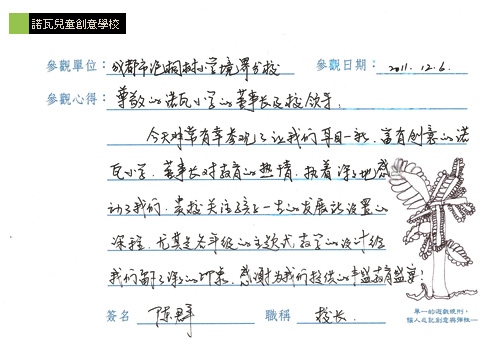 諾瓦兒童創意學校
參觀單位：成都市泡桐树小学境界分校 參觀日期：2011.12.6.
參觀心得：尊敬的诺瓦小学的董事长及校领导，
今天非常有幸参观了让我们耳目一新，富有创意的诺
瓦小学，董事长对教育的热情，执着深深地感
动了我们，贵校关注孩子一生的发展设置的
课程，尤其是各年级的主题式教学的设计给
我们留下深深的印象，感谢为我们提供的丰盛教育盛宴！
簽名 陈群 職稱 校长
單一的遊戲規則，
讓人忘記創意與彈性—